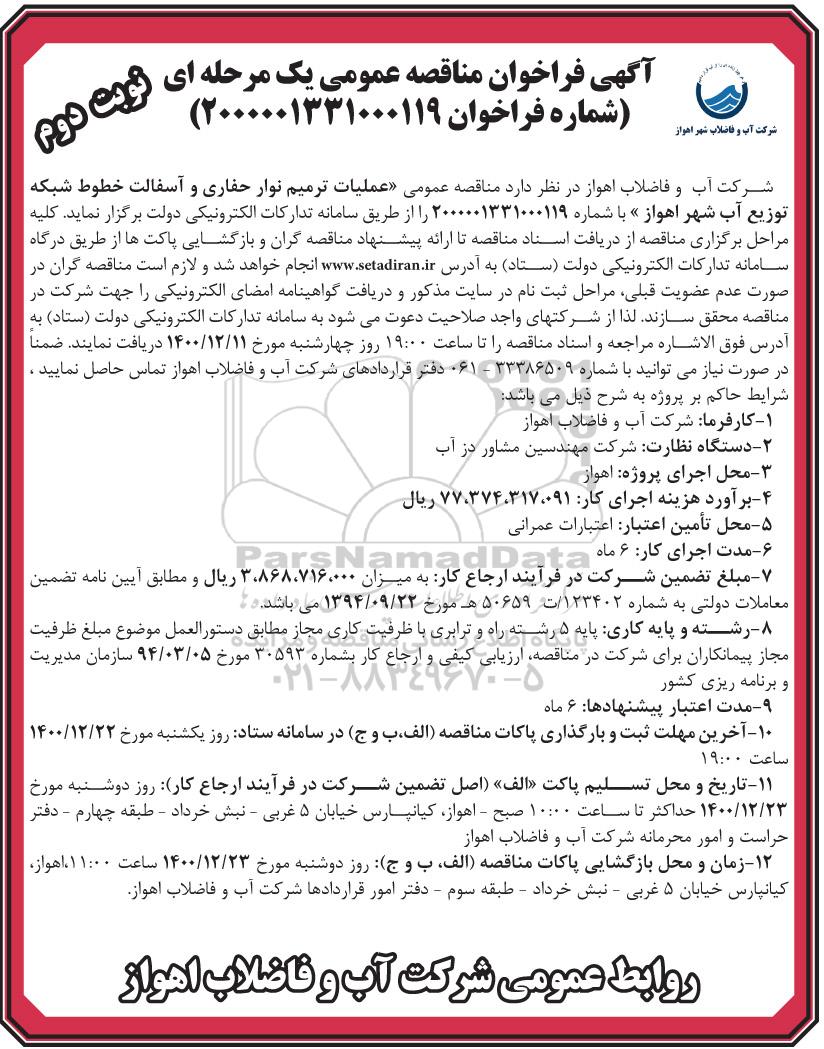 آگهی فراخوان مناقصه عمومی یک مرحله ای
(شماره فراخوان ۲۰۰۰۰۰۱۳۳۱۰۰۰۱۱۹)
نوبت دوم
شرکت آب و فاضلاب شهر اهواز
شرکت آب و فاضلاب اهواز در نظر دارد مناقصه عمومی «عملیات ترمیم نوار حفاری و آسفالت خطوط شبکه
توزیع آب شهر اهواز » با شماره ۲۰۰۰۰۰۱۳۳۱۰۰۰۱۱۹ را از طریق سامانه تدارکات الکترونیکی دولت برگزار نماید. کلیه
مراحل برگزاری مناقصه از دریافت اسناد مناقصه تا ارائه پیشنهاد مناقصه گران و بازگشایی پاکت ها از طریق درگاه
سامانه تدارکات الکترونیکی دولت (ستاد) به آدرس www.setadiran.ir انجام خواهد شد و لازم است مناقصه گران در
صورت عدم عضویت قبلی، مراحل ثبت نام در سایت مذکور و دریافت گواهینامه امضای الکترونیکی را جهت شرکت در
مناقصه محقق سازند. لذا از شرکتهای واجد صلاحیت دعوت می شود به سامانه تدارکات الکترونیکی دولت (ستاد) به
آدرس فوق الاشاره مراجعه و اسناد مناقصه را تا ساعت ۱۹:۰۰ روز چهارشنبه مورخ ۱۴۰۰/۱۲/۱۱ دریافت نمایند. ضمناً
در صورت نیاز می توانید با شماره ۳۳۳۸۶۵۰۹ - ۰۶۱ دفتر قراردادهای شرکت آب و فاضلاب اهواز تماس حاصل نمایید ،
شرایط حاکم بر پروژه به شرح ذیل می باشد:
۱-کارفرما: شرکت آب و فاضلاب اهواز
۲-دستگاه نظارت: شرکت مهندسین مشاور دز آب
۳-محل اجرای پروژه: اهواز
۴-برآورد هزینه اجرای کار: ۷۷،۳۷۴،۳۱۷،۰۹۱ ریال
۵-محل تأمین اعتبار: اعتبارات عمرانی
۶-مدت اجرای کار: ۶ ماه
۷-مبلغ تضمین شرکت در فرآیند ارجاع کار: به میزان ۳،۸۶۸،۷۱۶،۰۰۰ ریال و مطابق آیین نامه تضمین
معاملات دولتی به شماره ۱۲۳۴۰۲/ت ۵۰۶۵۹ هـ مورخ ۱۳۹۴/۰۹/۲۲ می باشد.
۸-رشته و پایه کاری: پایه ۵ رشته راه و ترابری با ظرفیت کاری مجاز مطابق دستورالعمل موضوع مبلغ ظرفیت
مجاز پیمانکاران برای شرکت در مناقصه، ارزیابی کیفی و ارجاع کار بشماره ۳۰۵۹۳ مورخ ۹۴/۰۳/۰۵ سازمان مدیریت
و برنامه ریزی کشور
۹-مدت اعتبار پیشنهادها: ۶ ماه
۱۰-آخرین مهلت ثبت و بارگذاری پاکات مناقصه (الف،ب و ج) در سامانه ستاد: روز یکشنبه مورخ ۱۴۰۰/۱۲/۲۲
ساعت ۱۹:۰۰
۱۱-تاریخ و محل تسلیم پاکت «الف» (اصل تضمین شرکت در فرآیند ارجاع کار): روز دوشنبه مورخ
۱۴۰۰/۱۲/۲۳ حداکثر تا ساعت ۱۰:۰۰ صبح - اهواز، کیانپارس خیابان ۵ غربی - نبش خرداد - طبقه چهارم - دفتر
حراست و امور محرمانه شرکت آب و فاضلاب اهواز
۱۲-زمان و محل بازگشایی پاکات مناقصه (الف، ب و ج): روز دوشنبه مورخ ۱۴۰۰/۱۲/۲۳ ساعت ۱۱:۰۰،اهواز،
کیانپارس خیابان ۵ غربی - نبش خرداد - طبقه سوم - دفتر امور قراردادها شرکت آب و فاضلاب اهواز.
روابط عمومی شرکت آب و فاضلاب اهواز
ParsNamadData
پایگاه اطلاع رسانی مناقصه و مزایده
۰۲۱-۸۸۳۴۹۶۷۰-۵